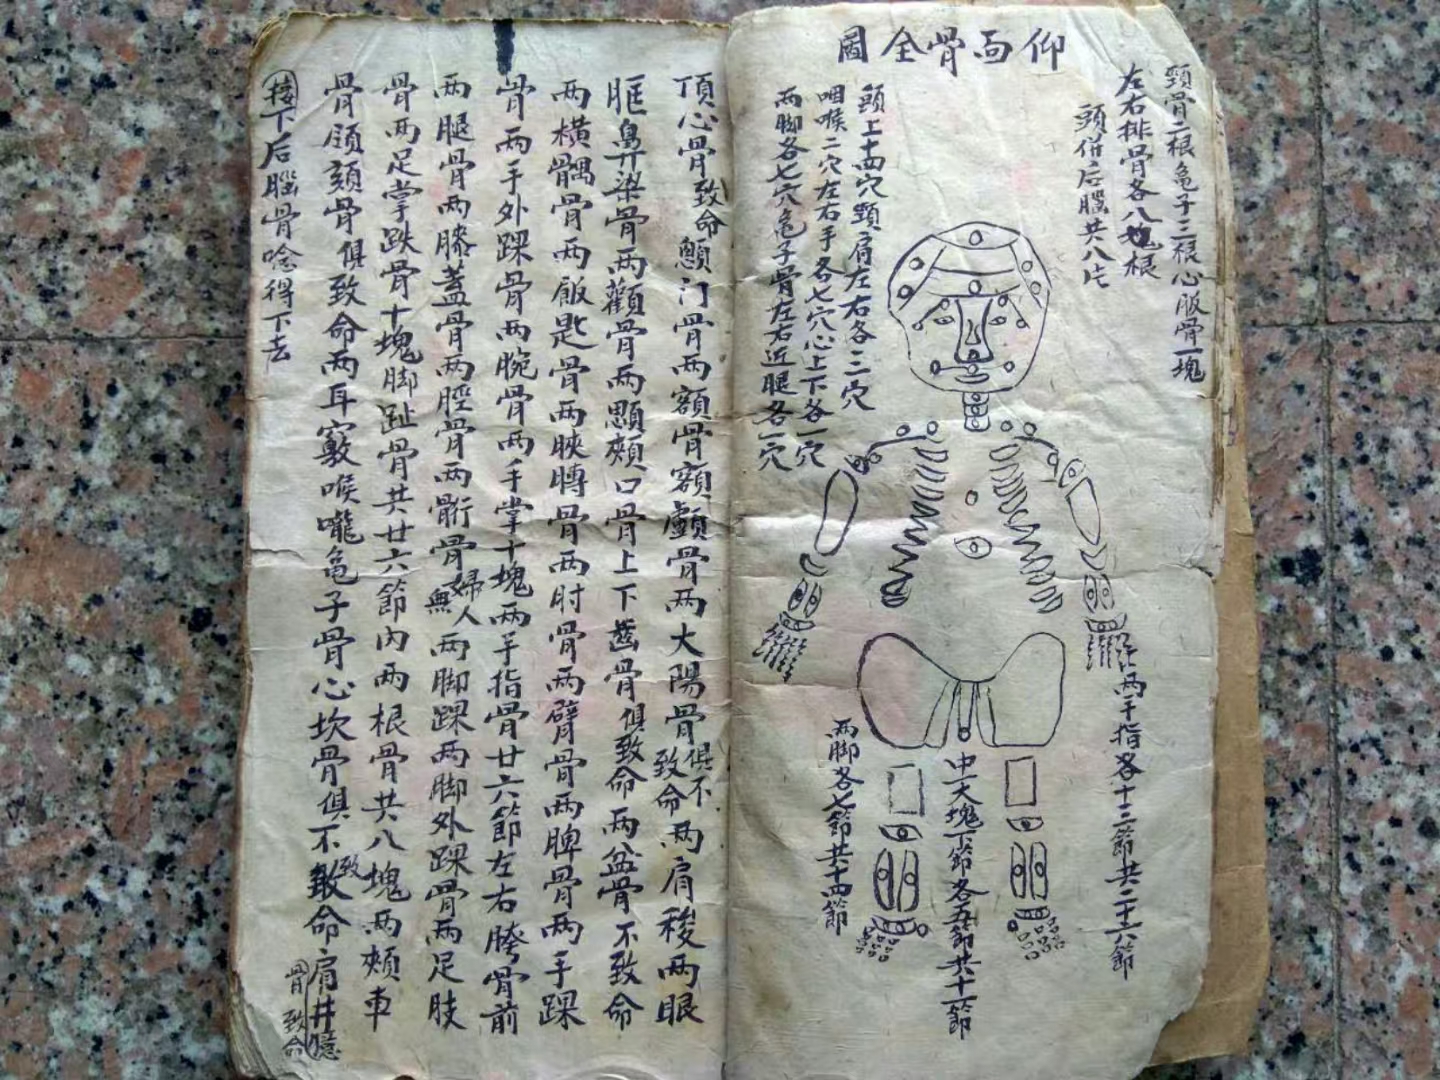 仰面骨全圖
頸骨二根龟子三根心版骨一塊
左右排骨各八塊根
頭併后腦共八片
頭上十四穴頸肩左右各三穴
咽喉二穴左右手各七穴心上下各一穴
两脚各七穴龟子骨左右近腿各一穴
两手指各十三節共二十六節
中一大塊下節各五節共十一節
两脚各七節共十四節
頂心骨致命顖门骨两額骨額顱骨两大陽骨俱不致命两肩稜两眼
眶鼻梁骨两顴骨两顋頰口骨上下齒骨俱致命两盆骨不致命
两横髃骨两飯匙骨两胂骨两肘骨两臂骨两脾骨两手踝
骨两手外踝骨两腕骨两手掌十塊两手指骨廿六節左右胯骨前
两腿骨两膝蓋骨两脛骨两䯒骨婦人無两脚踝两脚外踝骨两足肢
骨两足掌趺骨十塊脚趾骨共廿六節内两根骨共八塊两頰車
骨頷頦骨俱致命两耳竅喉嚨龟子骨心坎骨俱不致命肩井臆
骨致命
接下后腦骨唸得下去